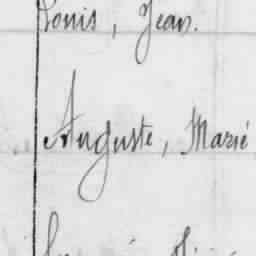 Louis, Jean.
Auguste, Marié